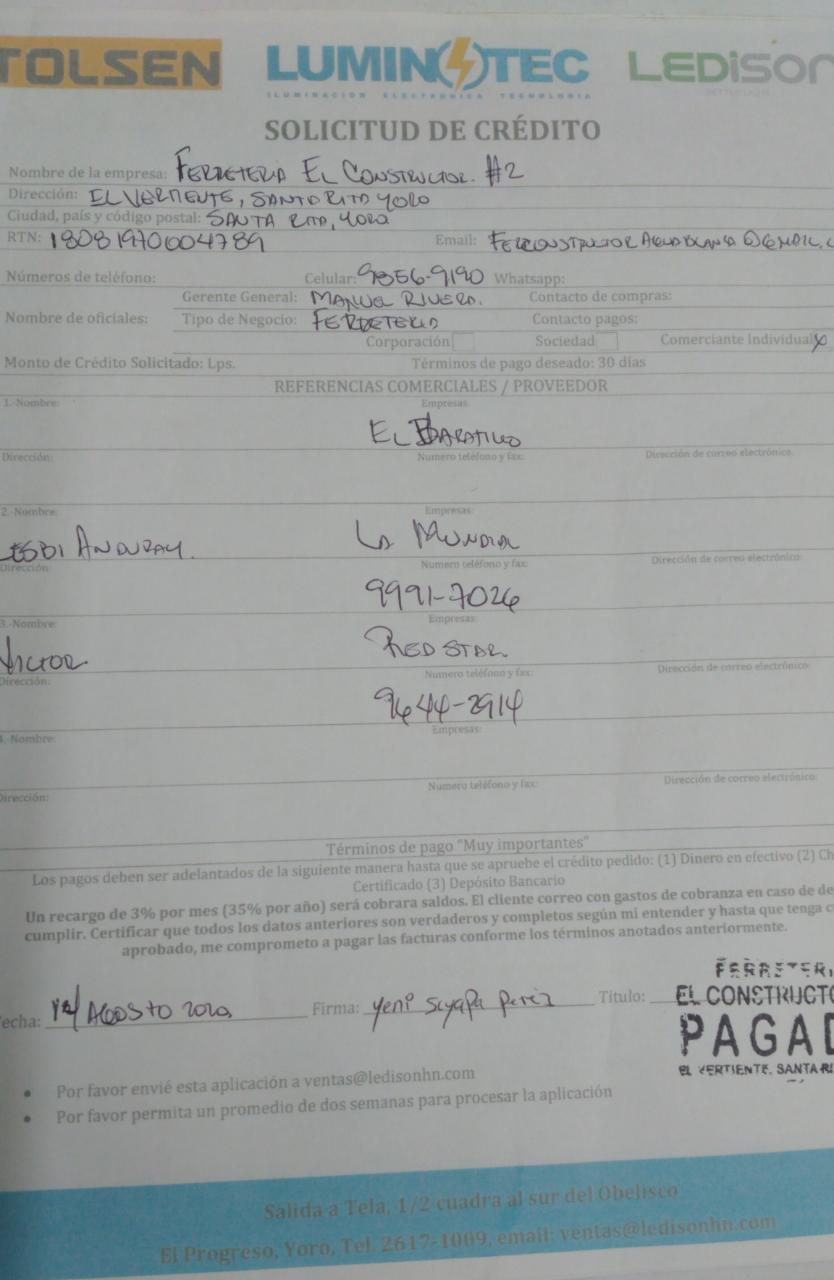 TOLSEN LUMINOTEC LEDiSON
ILUMINACION ELECTRONICA TECNOLOGIA
SOLICITUD DE CRÉDITO
Nombre de la empresa: FERRETERIA EL CONSTRUCTOR #2
Dirección: EL VERTIENTE, SANTA RITA YORO
Ciudad, país y código postal: SANTA RITA, YORO
RTN: 18081970004789 Email: FERCONSTRUCTORAGUABLANCA@GMAIL.C
Números de teléfono: Celular: 9856-9190 Whatsapp:
Gerente General: MANUEL RIVERA. Contacto de compras:
Nombre de oficiales: Tipo de Negocio: FERRETERIA Contacto pagos:
Corporación Sociedad Comerciante Individual X
Monto de Crédito Solicitado: Lps. Términos de pago deseado: 30 días
REFERENCIAS COMERCIALES / PROVEEDOR
1.-Nombre: Empresas:
EL BARATILLO
Dirección: Numero teléfono y fax: Dirección de correo electrónico:
2.-Nombre: Empresas:
ANDURAY. LA MUNDIAL
Dirección: Numero teléfono y fax: Dirección de correo electrónico:
9991-7026
3.-Nombre: Empresas:
VICTOR RED STAR
Dirección: Numero teléfono y fax: Dirección de correo electrónico:
9644-2914
4.-Nombre: Empresas:
Dirección: Numero teléfono y fax: Dirección de correo electrónico:
Términos de pago "Muy importantes"
Los pagos deben ser adelantados de la siguiente manera hasta que se apruebe el crédito pedido: (1) Dinero en efectivo (2) Ch
Certificado (3) Depósito Bancario
Un recargo de 3% por mes (35% por año) será cobrara saldos. El cliente correo con gastos de cobranza en caso de de
cumplir. Certificar que todos los datos anteriores son verdaderos y completos según mi entender y hasta que tenga c
aprobado, me comprometo a pagar las facturas conforme los términos anotados anteriormente.
FERRETERI
EL CONSTRUCTO
Fecha: AGOSTO 2020 Firma: Yeni Suyapa Perez Título:
PAGAD
EL VERTIENTE, SANTA RI
• Por favor envié esta aplicación a ventas@ledisonhn.com
• Por favor permita un promedio de dos semanas para procesar la aplicación
Salida a Tela, 1/2 cuadra al sur del Obelisco
El Progreso, Yoro, Tel. 2617-1009, email: ventas@ledisonhn.com